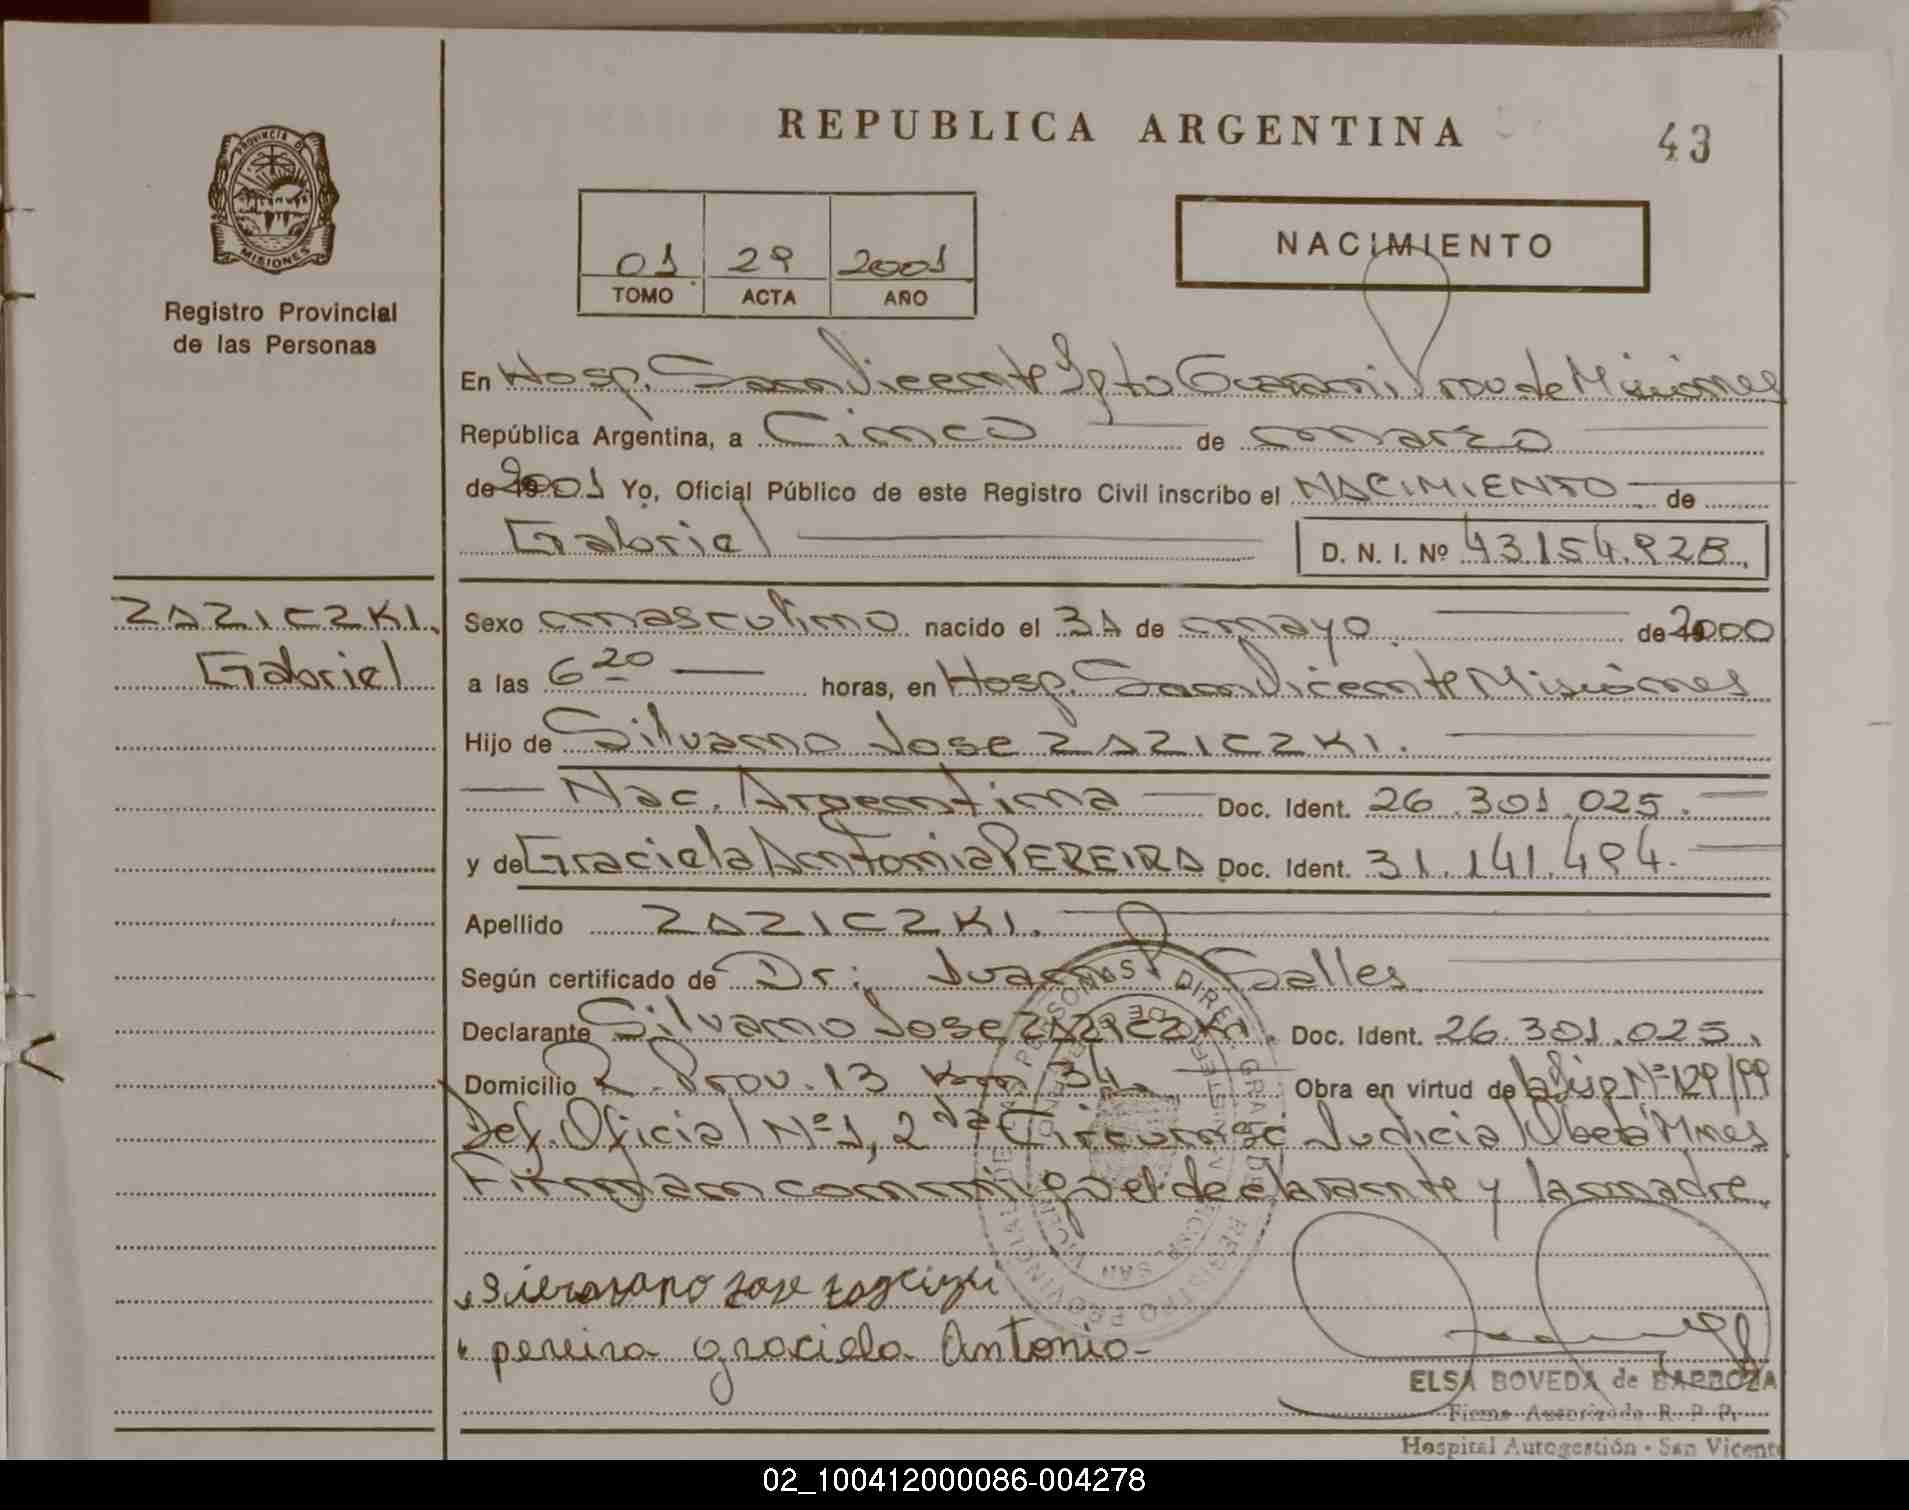 REPUBLICA ARGENTINA
43
PROVINCIA DE
MISIONES
Registro Provincial
de las Personas
01 29 2001
TOMO ACTA AÑO
NACIMIENTO
En Hosp. San Vicente Dpto Guarani Prov de Misiones
República Argentina, a Cinco de marzo
de 2001 Yo, Oficial Público de este Registro Civil inscribo el NACIMIENTO de
Gabriel D. N. I. Nº 43.154.928.
ZAZICZKI,
Gabriel
Sexo masculino nacido el 31 de mayo de 2000
a las 6 20 horas, en Hosp. San Vicente Misiones
Hijo de Silvano Jose ZAZICZKI.
Nac. Argentina Doc. Ident. 26.301.025.
y de Graciela Antonia PEREIRA Doc. Ident. 31.141.494.
Apellido ZAZICZKI.
Según certificado de Dr: Juan Salles
Declarante Silvano Jose ZAZICZKI. Doc. Ident. 26.301.025.
Domicilio R. Prov. 13 Km 34 Obra en virtud de la Nº 129/99
Def. Oficial Nº 1, 2da Circunsc Judicial Oberá Mnes
Firman conmigo el declarante y la madre.
jose
pereira graciela Antonia
ELSA BOVEDA de BARBOZA
Firma Autorizada R. P. P.
Hospital Autogestión - San Vicente
02_100412000086-004278